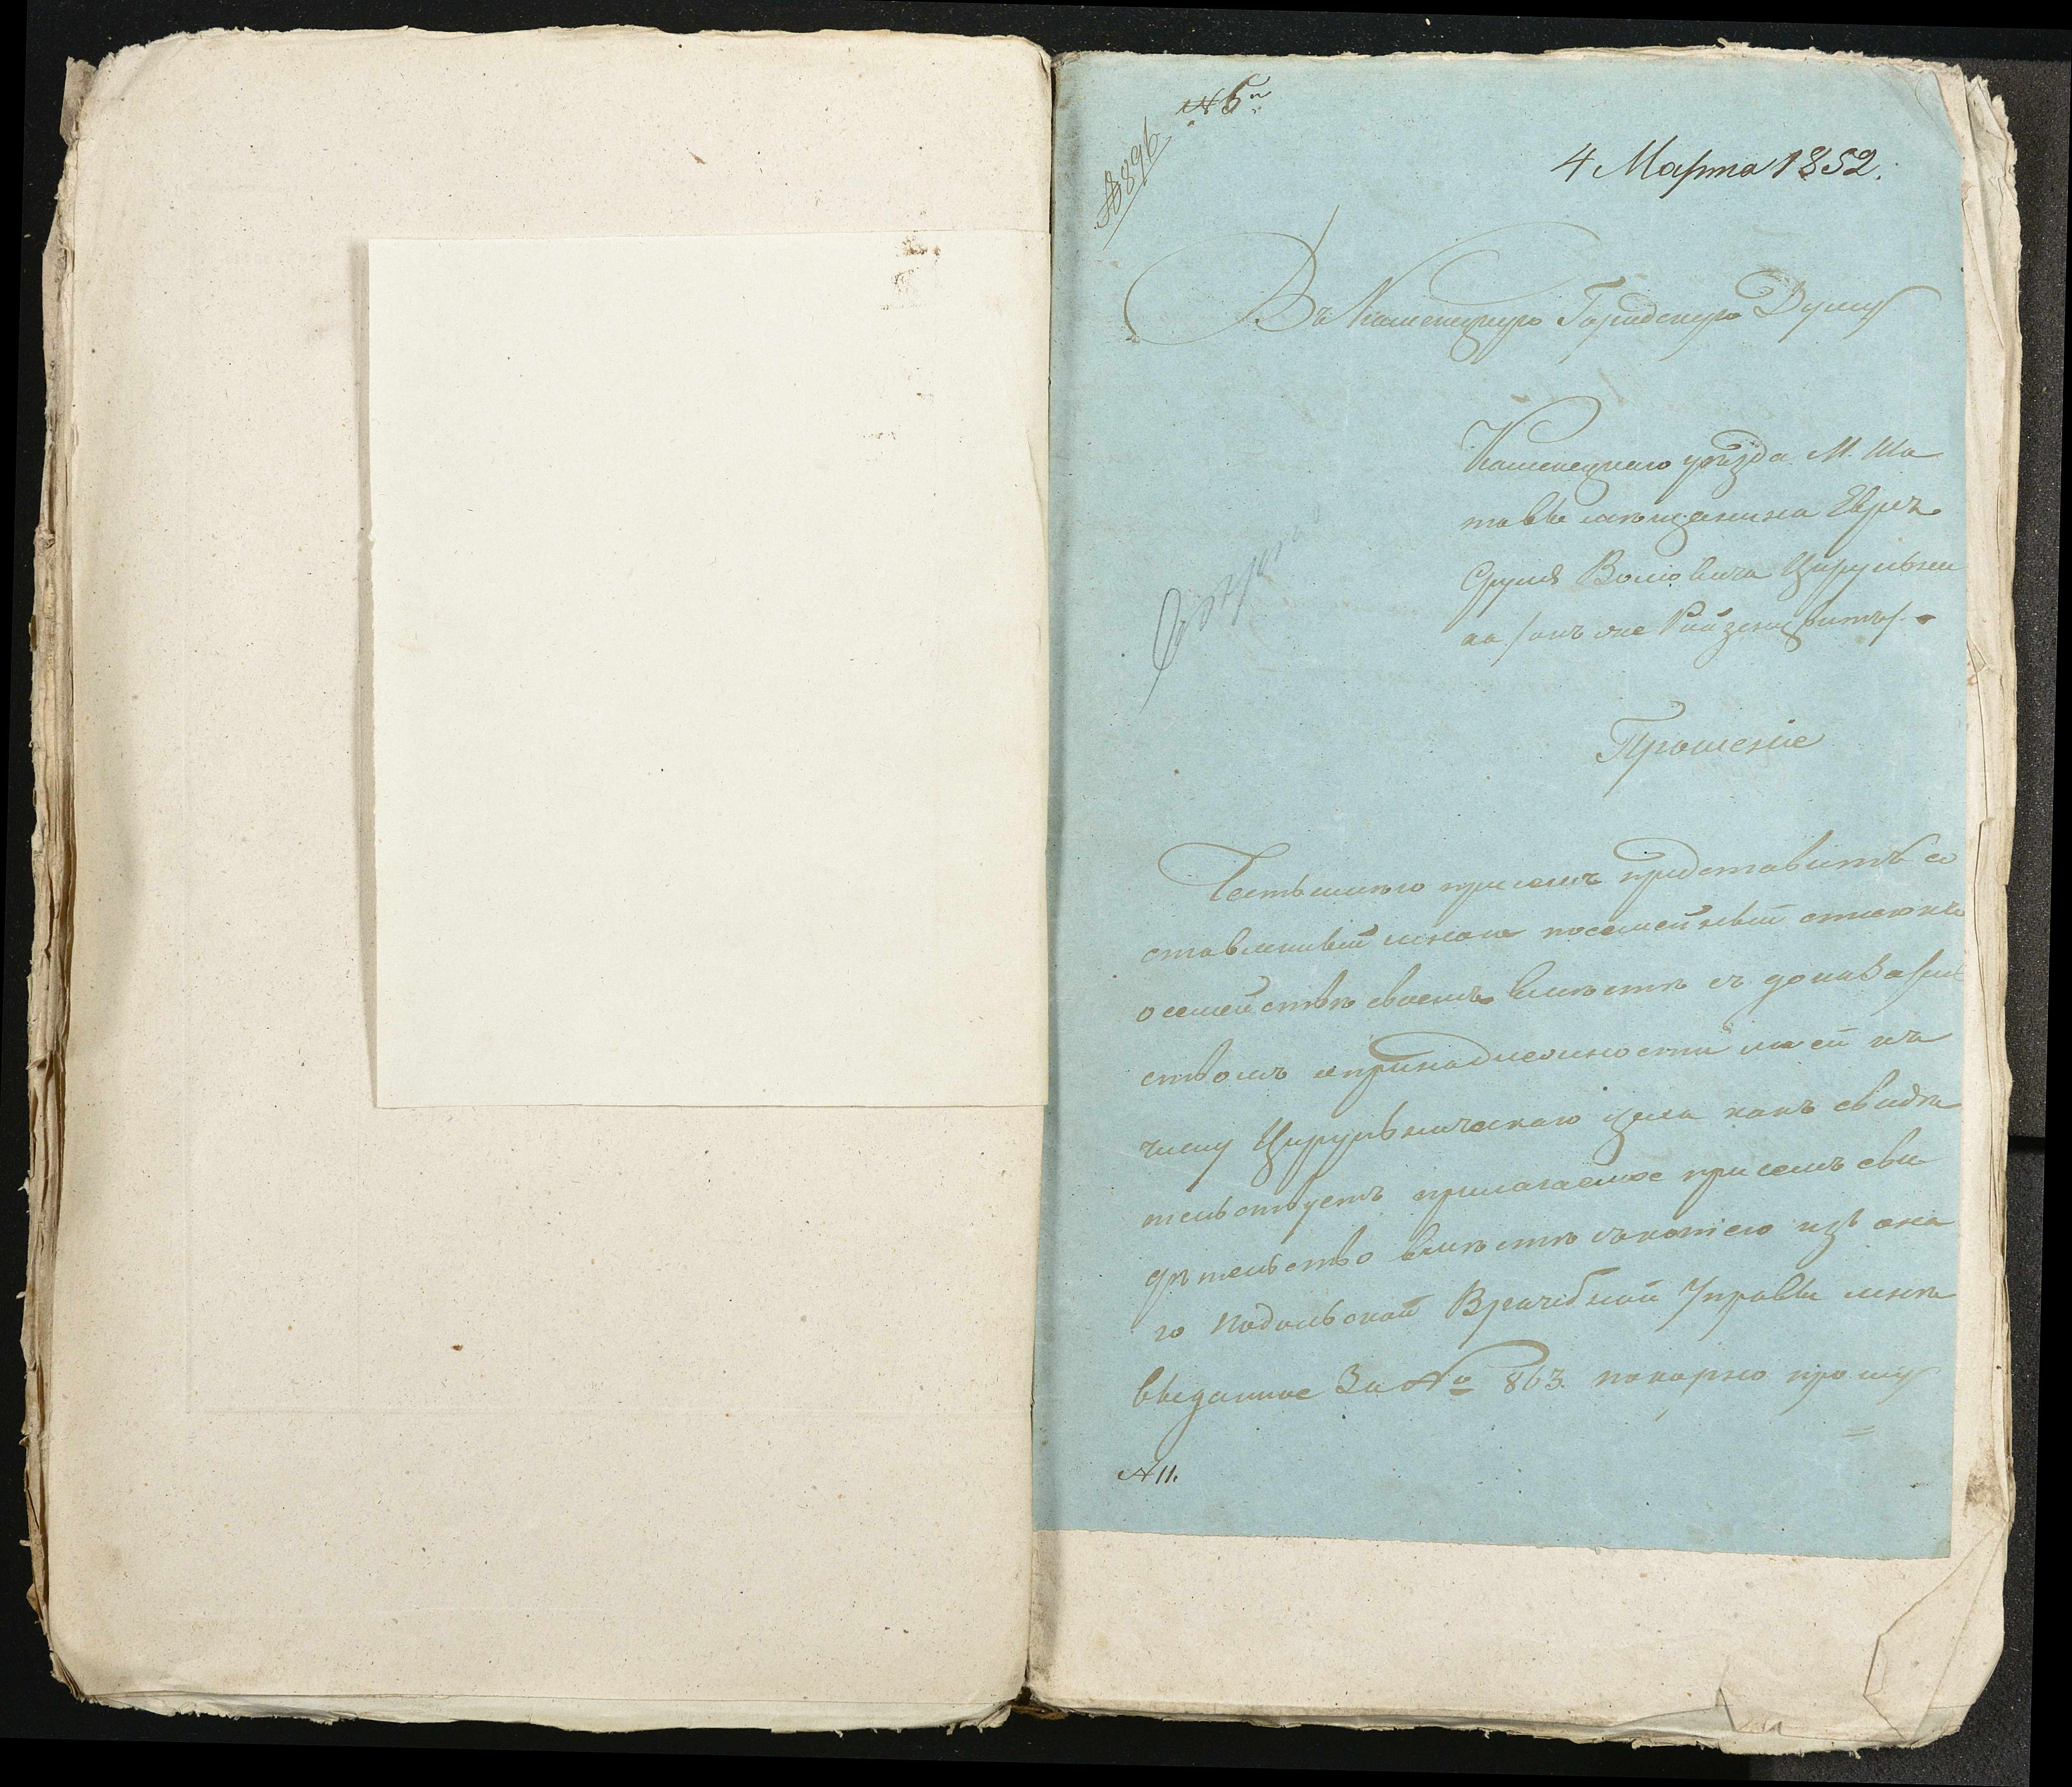 № 5й
№ 896
4 Марта 1852.
Въ Каменецкую Городскую Думу
Каменецкаго уѣзда М. Ша
тавы мѣщанина Еврея
Сруля Волковича Цирульни
ка /онъ же
Прошеніе
Честь имѣю при семъ представить со
ставленный мною посемейный списокъ
о семействѣ своемъ вмѣстѣ съ доказатель
ствомъ о принадлежности моей къ
числу Цирульническаго цеха какъ свидѣ
тельствуетъ прилагаемое при семъ сви
дѣтельство вмѣстѣ съ копіею изъ она
го Подольской Врачебной Управы мнѣ
выданное За № 863. покорно прошу
№ 11.